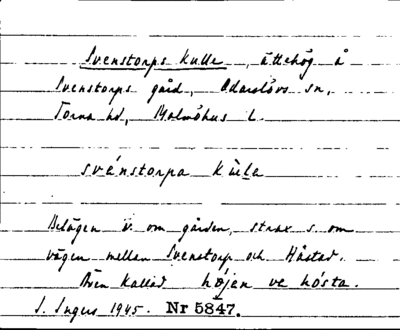 Svenstorps kulle, ättehög å
Svenstorps gård, Odarslövs sn,
Torna hd, Malmöhus l.
svénstorpa kùla
Belägen v. om gården, strax s. om
vägen mellan Svenstorp och Håstad.
Även kallad højen ve hósta.
I. Ingers 1945. Nr 5847.